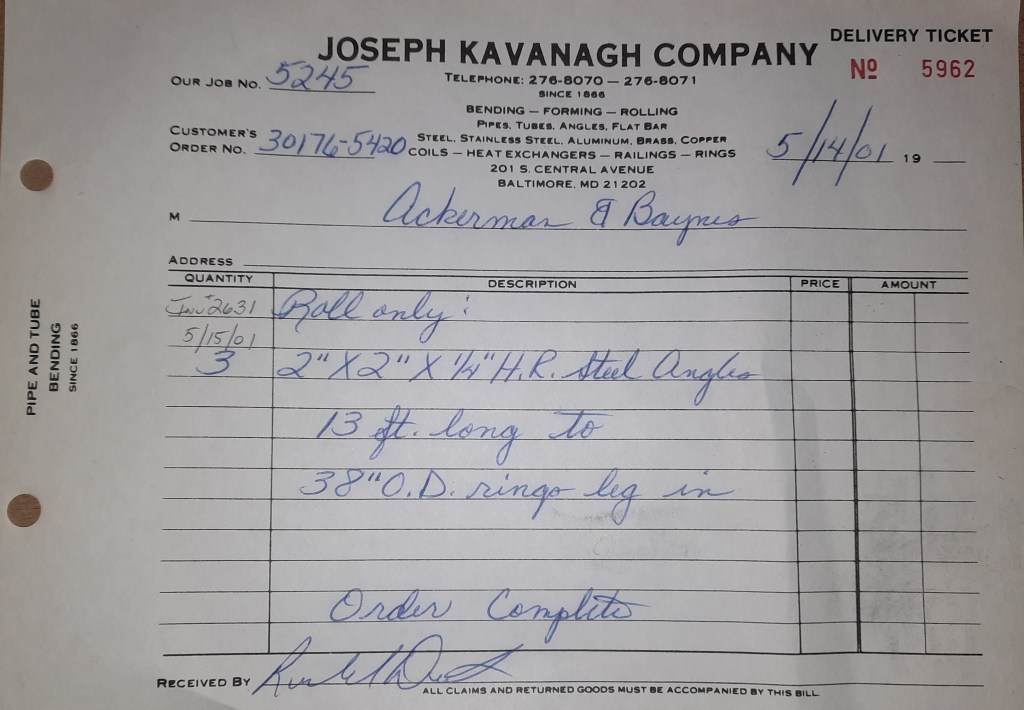 DELIVERY TICKET
JOSEPH KAVANAGH COMPANY
Nº 5962
OUR JOB NO. 5245
TELEPHONE: 276-8070 — 276-8071
SINCE 1866
BENDING — FORMING — ROLLING
PIPES, TUBES, ANGLES, FLAT BAR
CUSTOMER'S ORDER NO. 30176-5420
STEEL, STAINLESS STEEL, ALUMINUM, BRASS, COPPER
COILS — HEAT EXCHANGERS — RAILINGS — RINGS
5/14/01 19
201 S. CENTRAL AVENUE
BALTIMORE, MD 21202
M Ackerman & Baynes
ADDRESS
QUANTITY DESCRIPTION PRICE AMOUNT
Inv #2631 Roll only:
5/15/01
3 2" X 2" X 1/4" H.R. Steel Angles
13 ft. long to
38" O.D. rings leg in
Order Complete
RECEIVED BY
ALL CLAIMS AND RETURNED GOODS MUST BE ACCOMPANIED BY THIS BILL
PIPE AND TUBE
BENDING
SINCE 1866